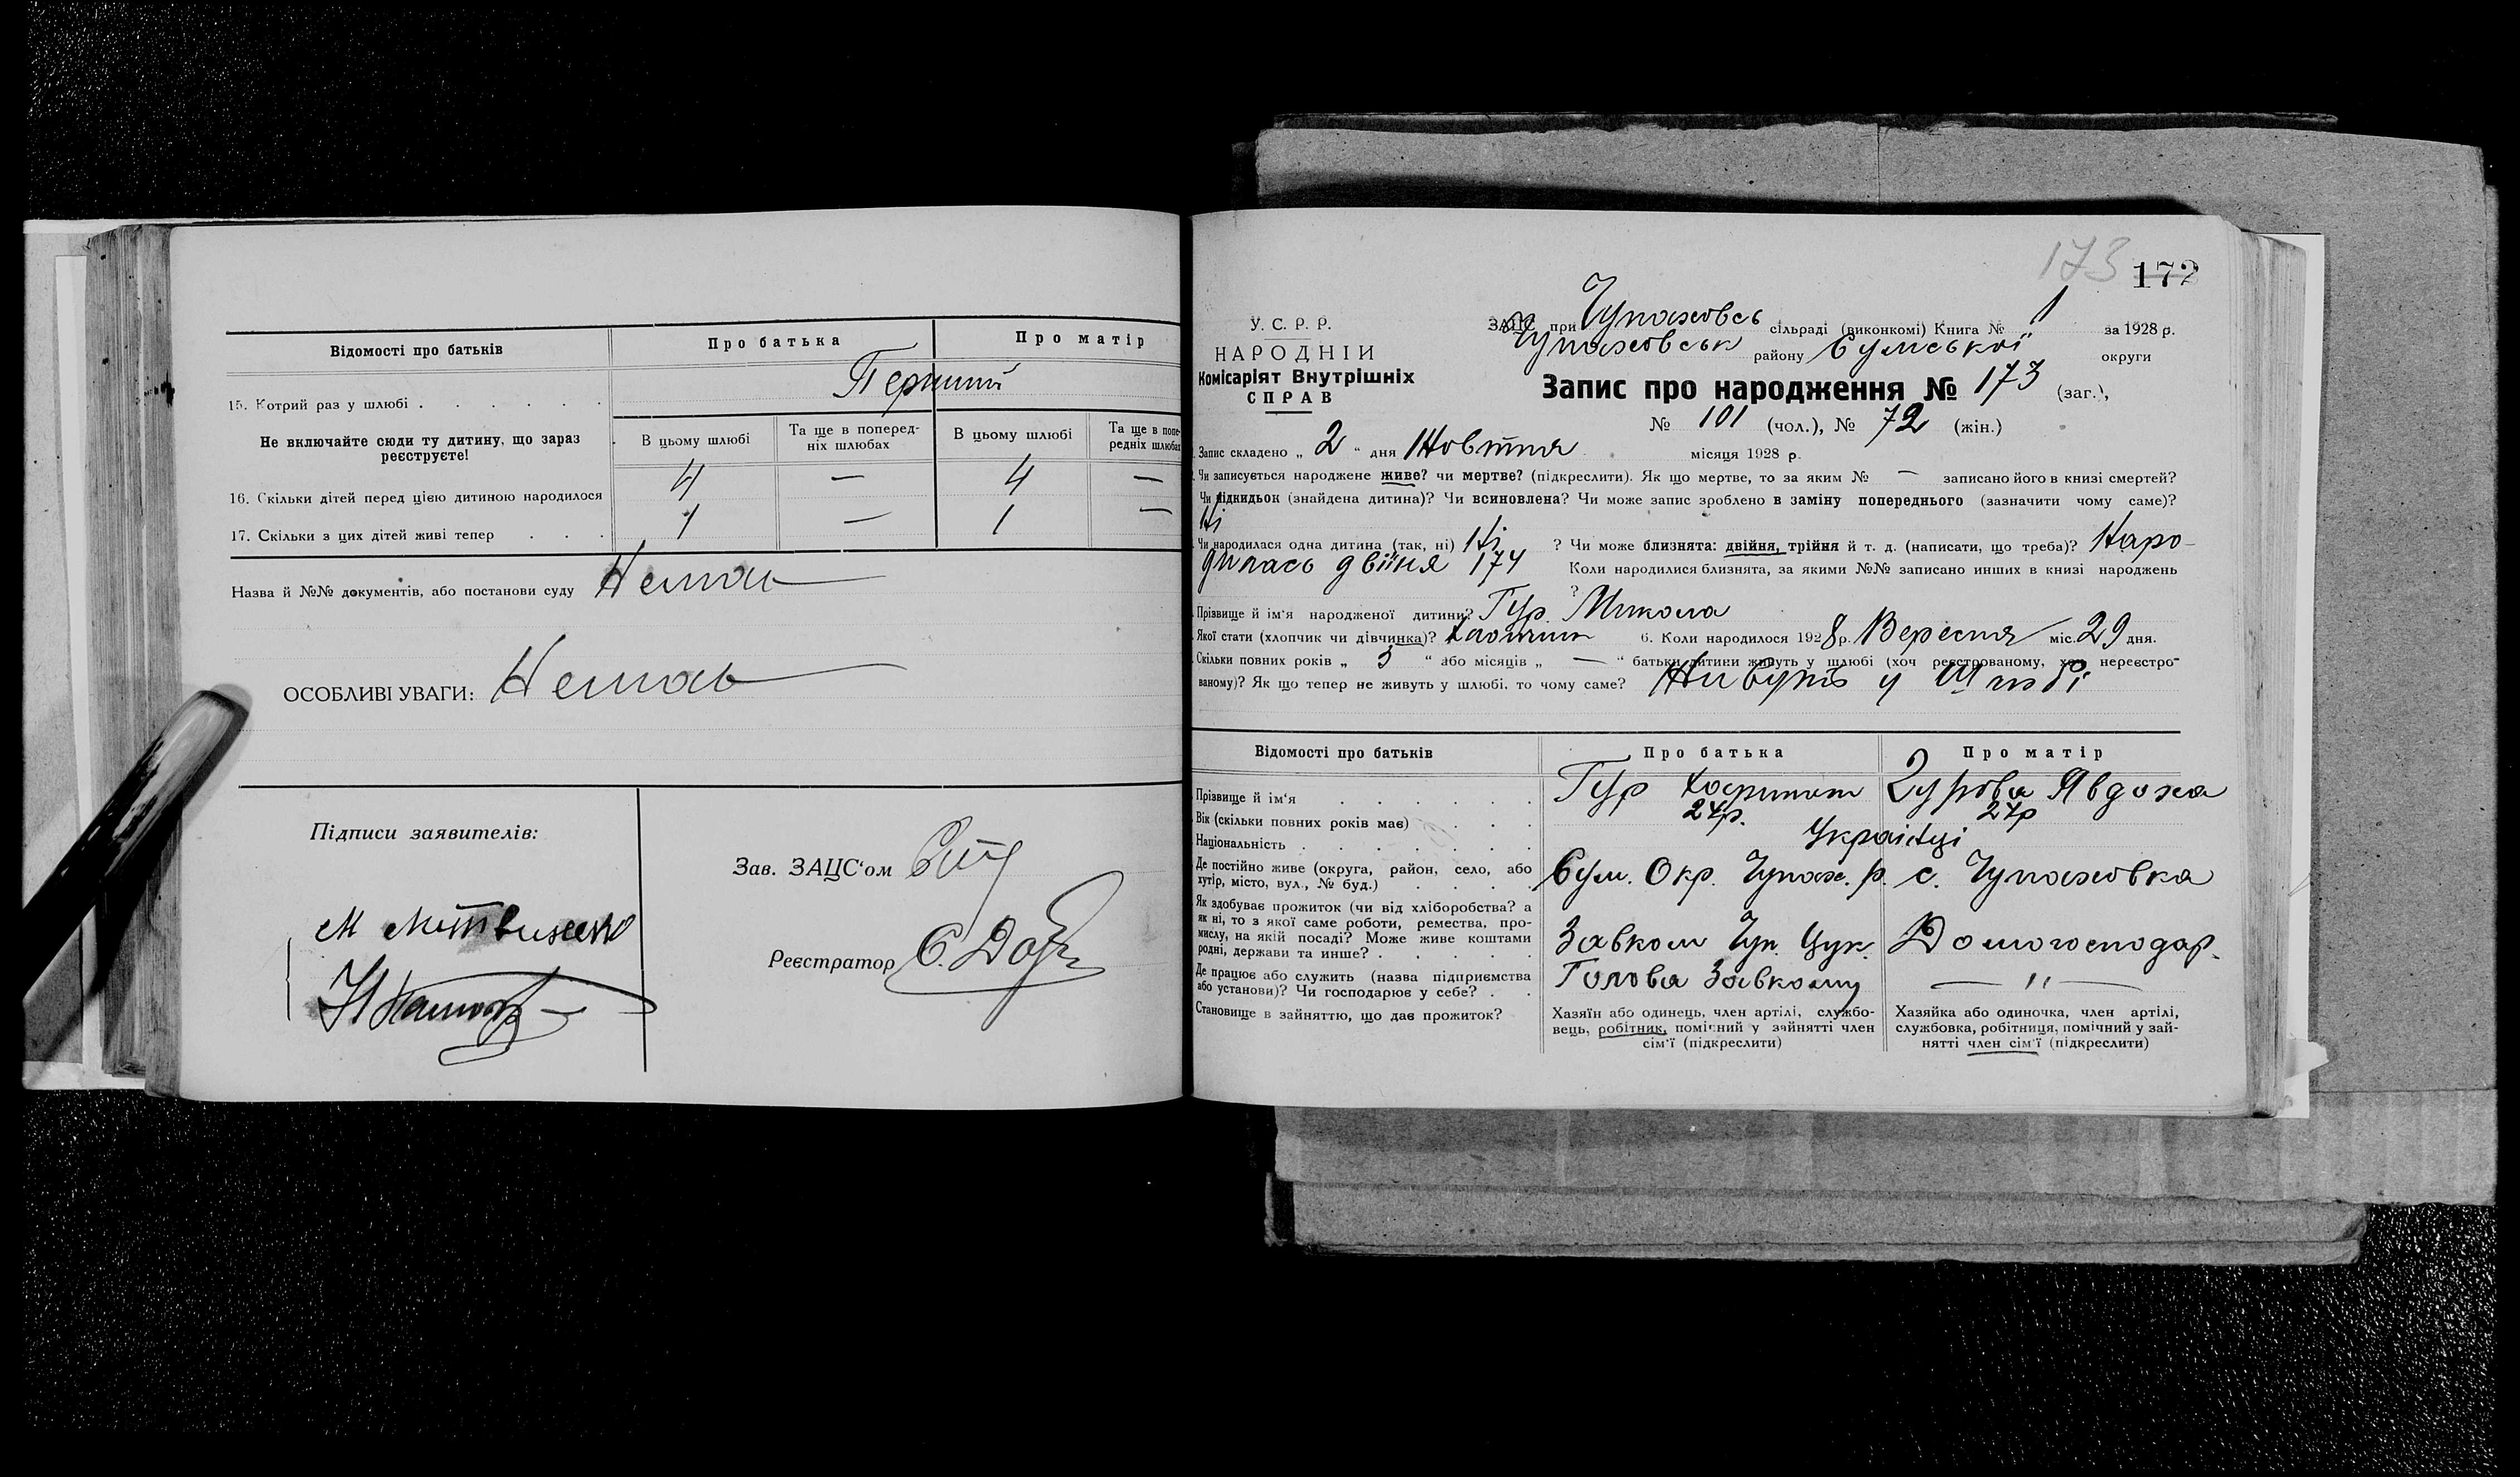 Відомості про батьків
Про батька
Про матір
15. Котрий раз у шлюбі . . . . . .
Перший
Не включайте сюди ту дитину, що зараз реєструєте!
В цьому шлюбі
Та ще в поперед-
ніх шлюбах
В цьому шлюбі
Та ще в попе-
редніх шлюбах
16. Скільки дітей перед цією дитиною народилося
4 — 4 —
17. Скільки з цих дітей живі тепер . . .
1 — 1 —
Назва й №№ документів, або постанови суду Немає
ОСОБЛИВІ УВАГИ: Немає
Підписи заявителів:
Зав. ЗАЦС'ом
Реєстратор
173 172
У. С. Р. Р.
НАРОДНІЙ
Комісаріят Внутрішніх
СПРАВ
ЗАЦС при Чупаховсь сільраді (виконкомі) Книга № 1 за 1928 р.
Чупаховськ району Сумської округи
Запис про народження № 173 (заг.),
№ 101 (чол.), № 72 (жін.)
Запис складено „ 2 “ дня Жовтня місяця 1928 р.
Чи записується народжене живе? чи мертве? (підкреслити). Як що мертве, то за яким № — записано його в книзі смертей?
Чи підкидьок (знайдена дитина)? Чи всиновлена? Чи може запис зроблено в заміну попереднього (зазначити чому саме)?
Ні
Чи народилася одна дитина (так, ні) Ні ? Чи може близнята: двійня, трійня й т. д. (написати, що треба)? Наро-
дилась двійня 174 Коли народилися близнята, за якими №№ записано инших в книзі народжень
?
Прізвище й ім'я народженої дитини? Гур Микола
Якої стати (хлопчик чи дівчинка)? Хлопчик 6. Коли народилося 1928 р. Вересня міс. 29 дня.
Скільки повних років „ 3 “ або місяців „ — “ батьки дитини живуть у шлюбі (хоч реєстрованому, хоч нереєстро-
ваному)? Як що тепер не живуть у шлюбі, то чому саме? Живуть у Шлюбі
Відомості про батьків
Про батька
Про матір
Прізвище й ім'я . . . . . .
Гур Харитон
Гурова Явдоха
Вік (скільки повних років має) . . .
27р.
27р
Національність . . . . . . .
Українці
Де постійно живе (округа, район, село, або
хутір, місто, вул., № буд.) . . . .
Сум. Окр. Чупах. р. с. Чупаховка
Як здобуває прожиток (чи від хліборобства? а
як ні, то з якої саме роботи, ремества, про-
мислу, на якій посаді? Може живе коштами
родні, держави та инше? . . . . .
Завком Чуп. Цук.
Домогосподар.
Де працює або служить (назва підприємства
або установи)? Чи господарює у себе? . .
Голова Завкому
— " —
Становище в зайняттю, що дає прожиток?
Хазяїн або одинець, член артілі, службо-
вець, робітник, помічний у зайнятті член
сім'ї (підкреслити)
Хазяйка або одиночка, член артілі,
службовка, робітниця, помічний у зай-
нятті член сім'ї (підкреслити)